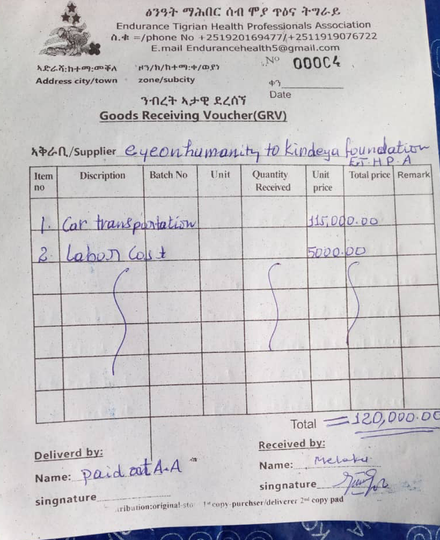 ፅንዓት ማሕበር ሰብ ሞያ ጥዕና ትግራይ
Endurance Tigrian Health Professionals Association
ስ.ቁ =/phone No +251920169477/+2511919076722
E.mail Endurancehealth5@gmail.com
ኣድራሻ:ከተማ:መቐለ ዞን/ክ/ከተማ:ቀ/ወያነ No 00004
Address city/town zone/subcity
ቀን
Date
ንብረት ኣታዊ ደረሰኝ
Goods Receiving Voucher(GRV)
ኣቅራቢ/Supplier eyeonhumanity to Kindeya foundation
E.T.H.P.A
Item no Discription Batch No Unit Quantity Received Unit price Total price Remark
1. Car transportation 115,000.00
2. Labor Cost 5000.00
Total = 120,000.00
Deliverd by: Received by:
Name: Paid at A.A Name:
singnature singnature
ribation:original-sto 1st copy-purchser/deliverer 2nd copy pad